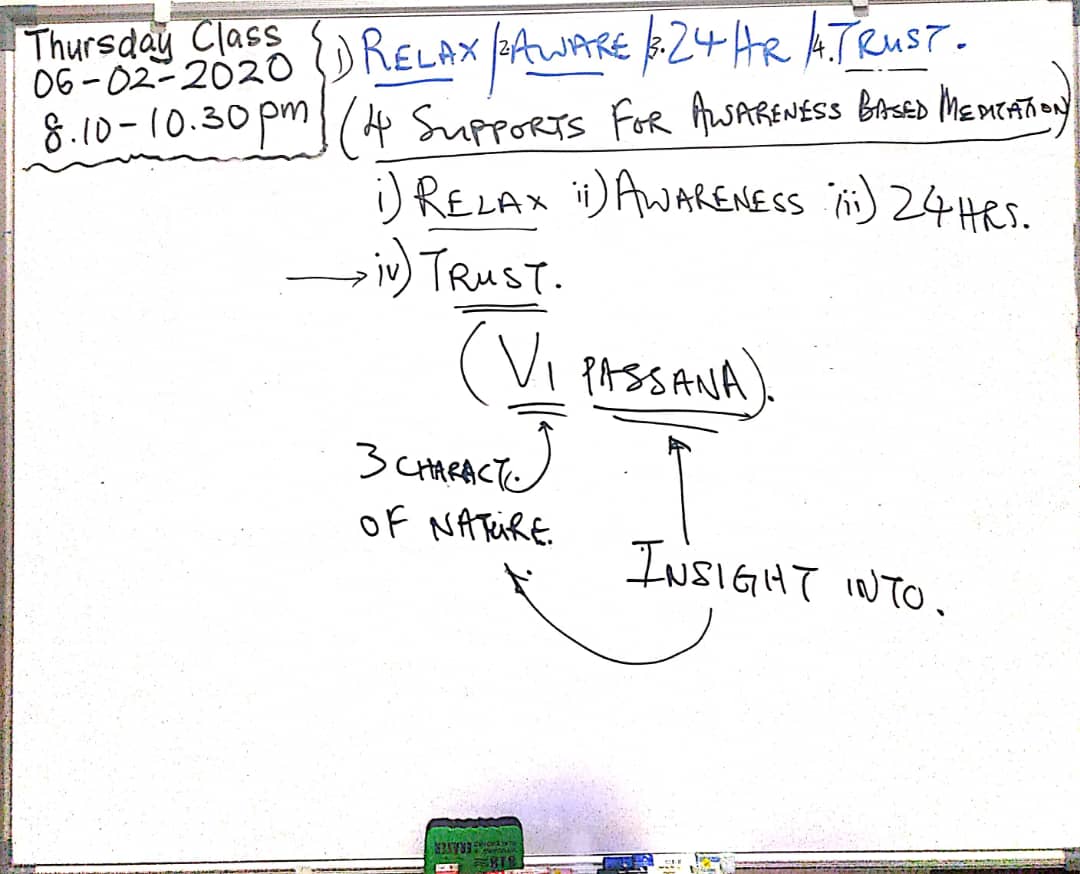 Thursday Class
06-02-2020
8.10-10.30pm
1) RELAX /2.AWARE /3.24 HR /4.TRUST.
(4 SUPPORTS FOR AWARENESS BASED MEDITATION)
i) RELAX ii) AWARENESS iii) 24 HRS.
→ iv) TRUST.
(VI PASSANA).
3 CHARACT.
OF NATURE.
INSIGHT INTO.